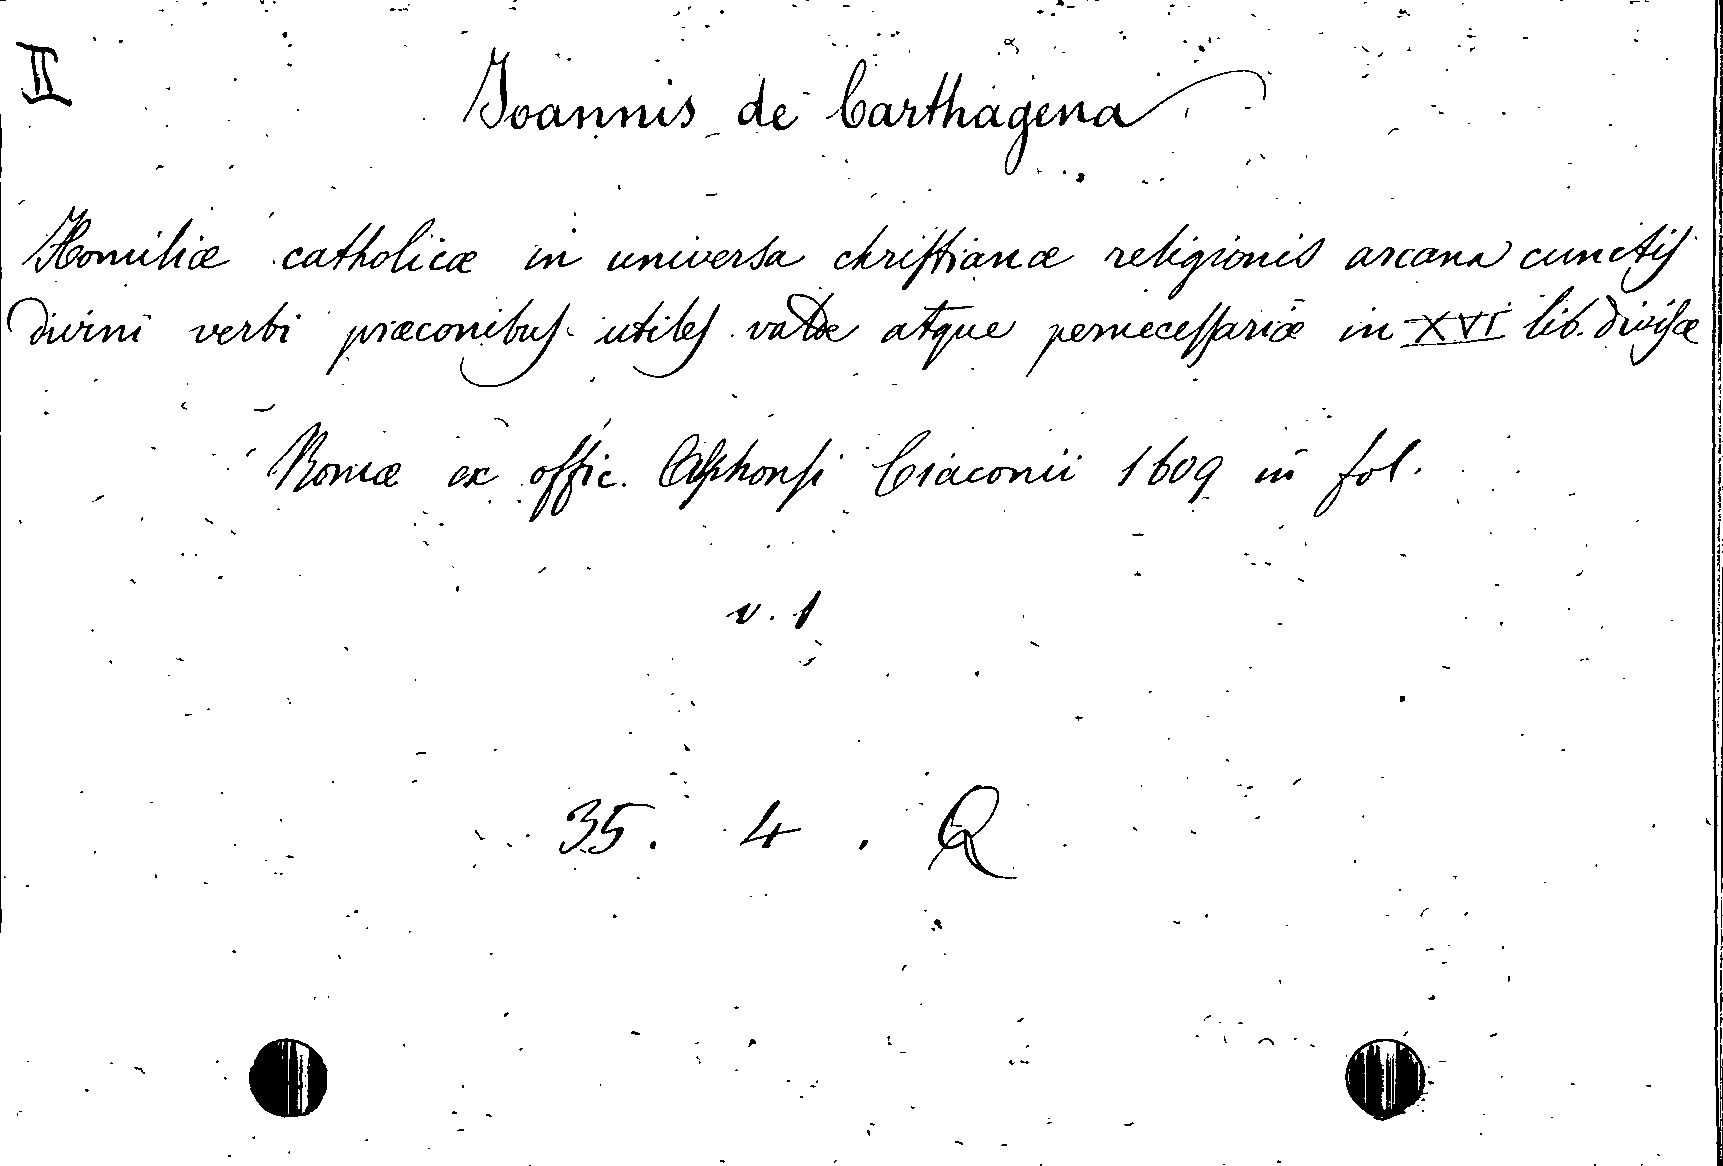 II
Joannis de Carthagena
Homiliæ catholicæ in universa christianæ religionis arcana cunctis
divini verbi præconibus utiles valde atque pernecessariæ in XVI lib. divisæ
Romæ ex offic. Alphonsi Ciaconii 1609 in fol.
v. 1
35. 4. Q